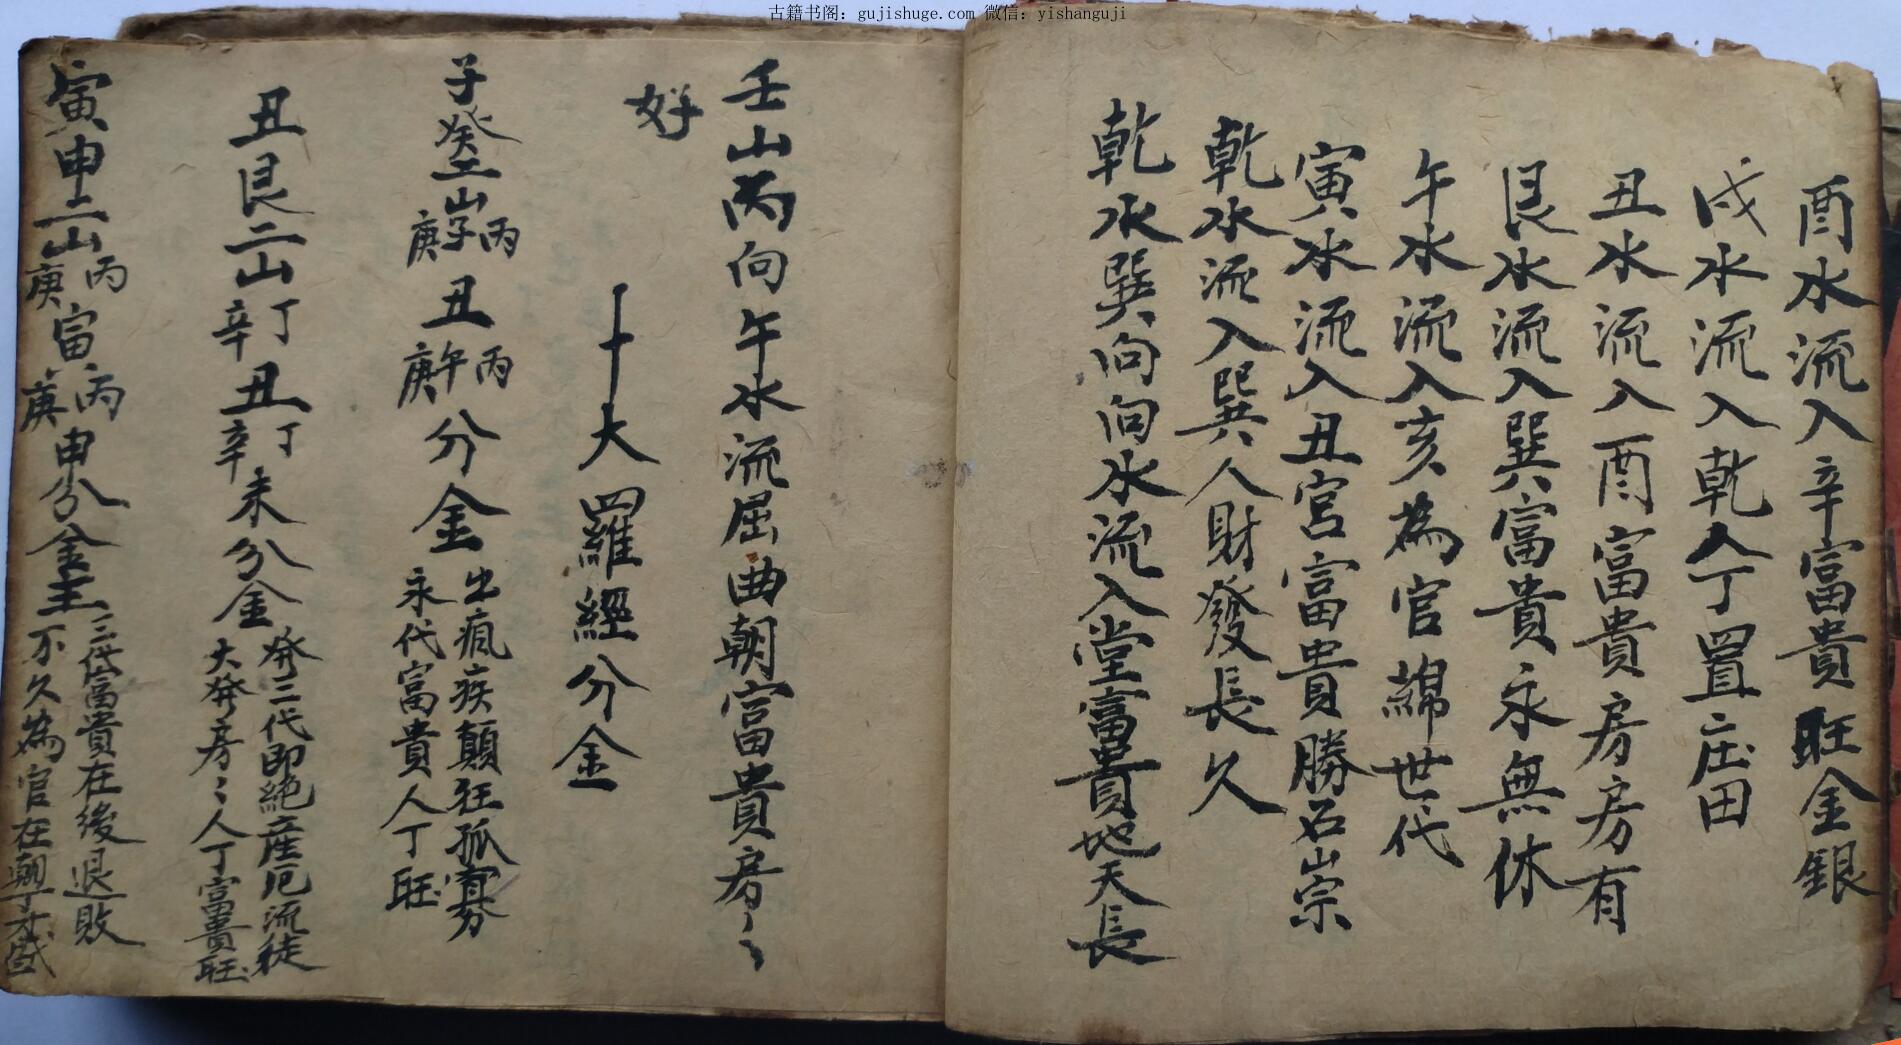 古籍书阁：gujishuge.com 微信：yishanguji
酉水流入辛富貴旺金銀
戌水流入乾人丁置庄田
丑水流入酉富貴房房有
艮水流入巽富貴永無休
午水流入亥為官綿世代
寅水流入丑宮富貴勝石山宗
乾水流入巽人財發長久
乾水巽向向水流入堂富貴地天長
壬山丙向午水流屈曲朝富貴房〻
好
十大羅經分金
子癸二山丙子庚丑丙午庚分金
出瘋疾顛狂孤寡
永代富貴人丁旺
丑艮二山丁辛丑丁辛未分金
発三代即絶産厄流徒
大発房〻人丁富貴旺
寅申二山丙庚寅丙庚申分金主
三代富貴在後退敗
不久為官在朝